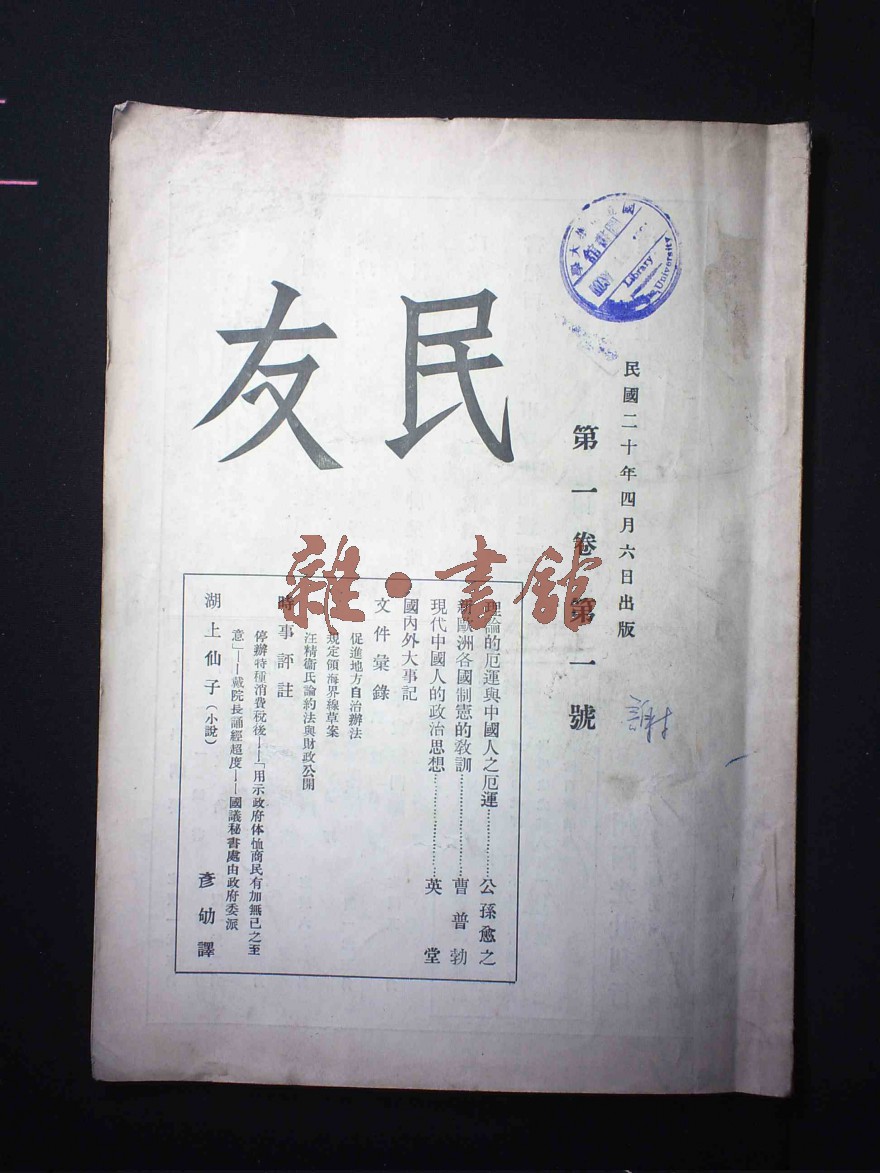 民國二十年四月六日出版
第一卷第一號
民友
理論的厄運與中國人之厄運……………公孫愈之
新歐洲各國制憲的敎訓……………曹普勃
現代中國人的政治思想……………英堂
國內外大事記
文件彙錄
促進地方自治辦法
規定領海界線草案
汪精衞氏論約法與財政公開
時事評註
停辦特種消費稅後——「用示政府体恤商民有加無已之至
意」——戴院長誦經超度——國議秘書處由政府委派
湖上仙子（小說） 彥劬譯
雜·書館
Library
University